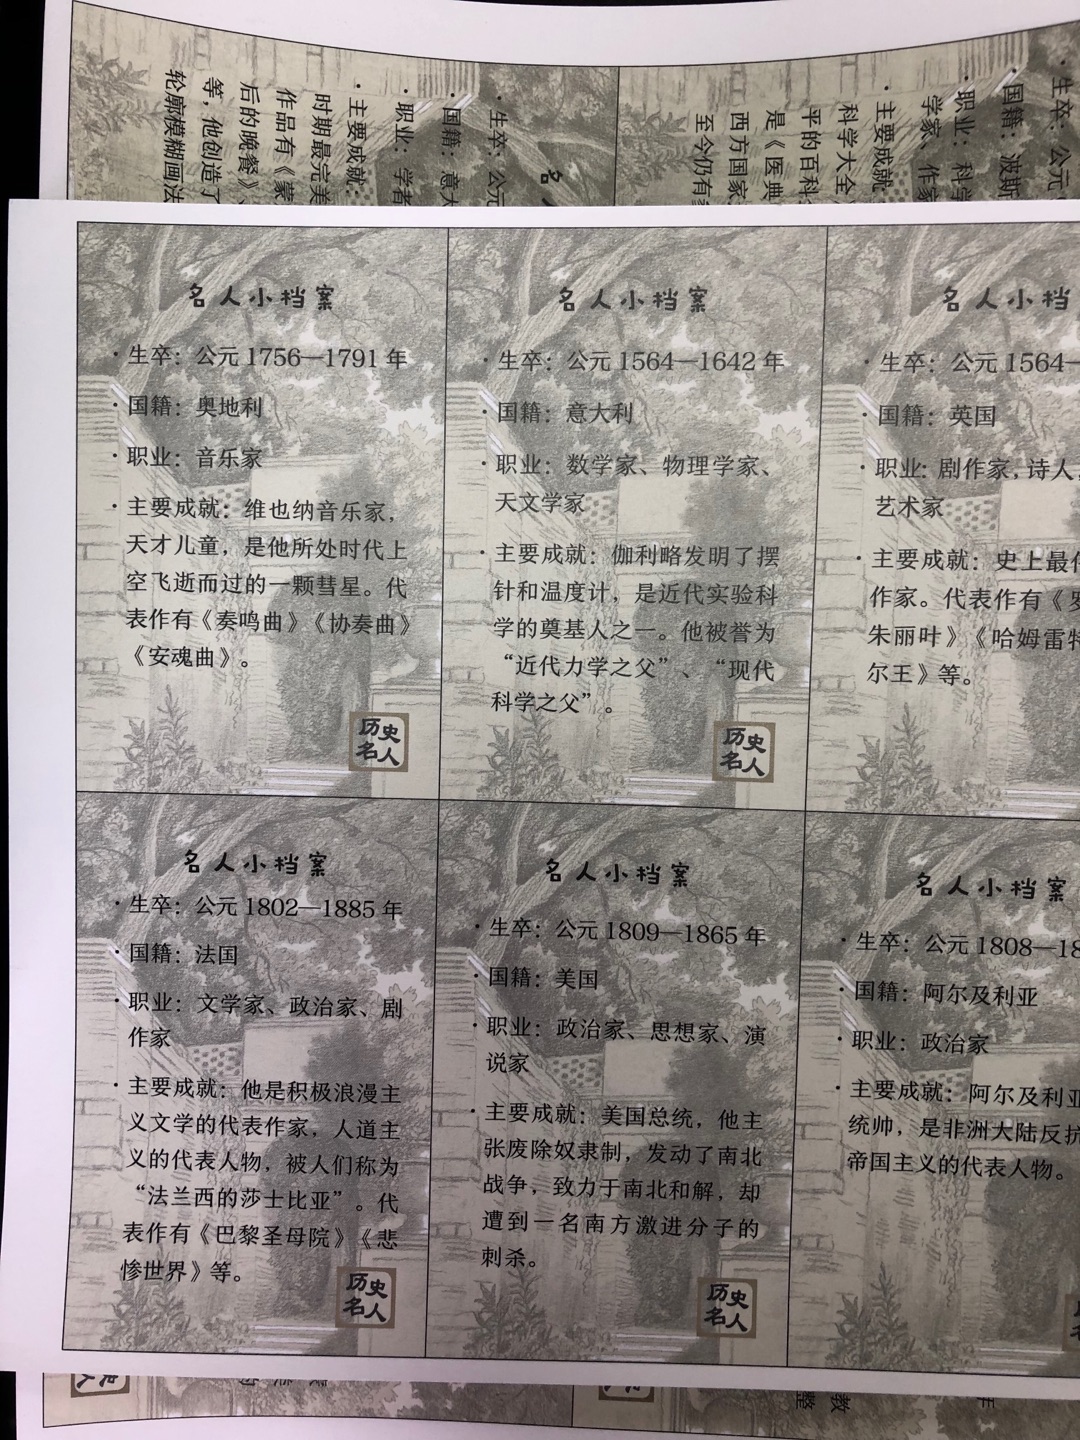 生卒：公元
国籍：意大
职业：学者
主要成就：
时期最完美
作品有《蒙
后的晚餐》
等，他创造了
轮廓模糊画法
生卒：公元
国籍：波斯
职业：科学
学家、作家
主要成就
科学大全
平的百科
是《医典
西方国家
至今仍有
名人小档案
·生卒：公元1756—1791年
·国籍：奥地利
·职业：音乐家
·主要成就：维也纳音乐家，
天才儿童，是他所处时代上
空飞逝而过的一颗彗星。代
表作有《奏鸣曲》《协奏曲》
《安魂曲》。
历史
名人
名人小档案
·生卒：公元1564—1642年
·国籍：意大利
·职业：数学家、物理学家、
天文学家
·主要成就：伽利略发明了摆
针和温度计，是近代实验科
学的奠基人之一。他被誉为
“近代力学之父”、“现代
科学之父”。
历史
名人
名人小档
·生卒：公元1564—
·国籍：英国
·职业：剧作家，诗人，
艺术家
·主要成就：史上最
作家。代表作有《罗
朱丽叶》《哈姆雷特
尔王》等。
名人小档案
·生卒：公元1802—1885年
·国籍：法国
·职业：文学家、政治家、剧
作家
·主要成就：他是积极浪漫主
义文学的代表作家，人道主
义的代表人物，被人们称为
“法兰西的莎士比亚”。代
表作有《巴黎圣母院》《悲
惨世界》等。
历史
名人
名人小档案
·生卒：公元1809—1865年
·国籍：美国
·职业：政治家、思想家、演
说家
·主要成就：美国总统，他主
张废除奴隶制，发动了南北
战争，致力于南北和解，却
遭到一名南方激进分子的
刺杀。
历史
名人
名人小档案
·生卒：公元1808—18
·国籍：阿尔及利亚
·职业：政治家
·主要成就：阿尔及利亚
统帅，是非洲大陆反抗
帝国主义的代表人物。